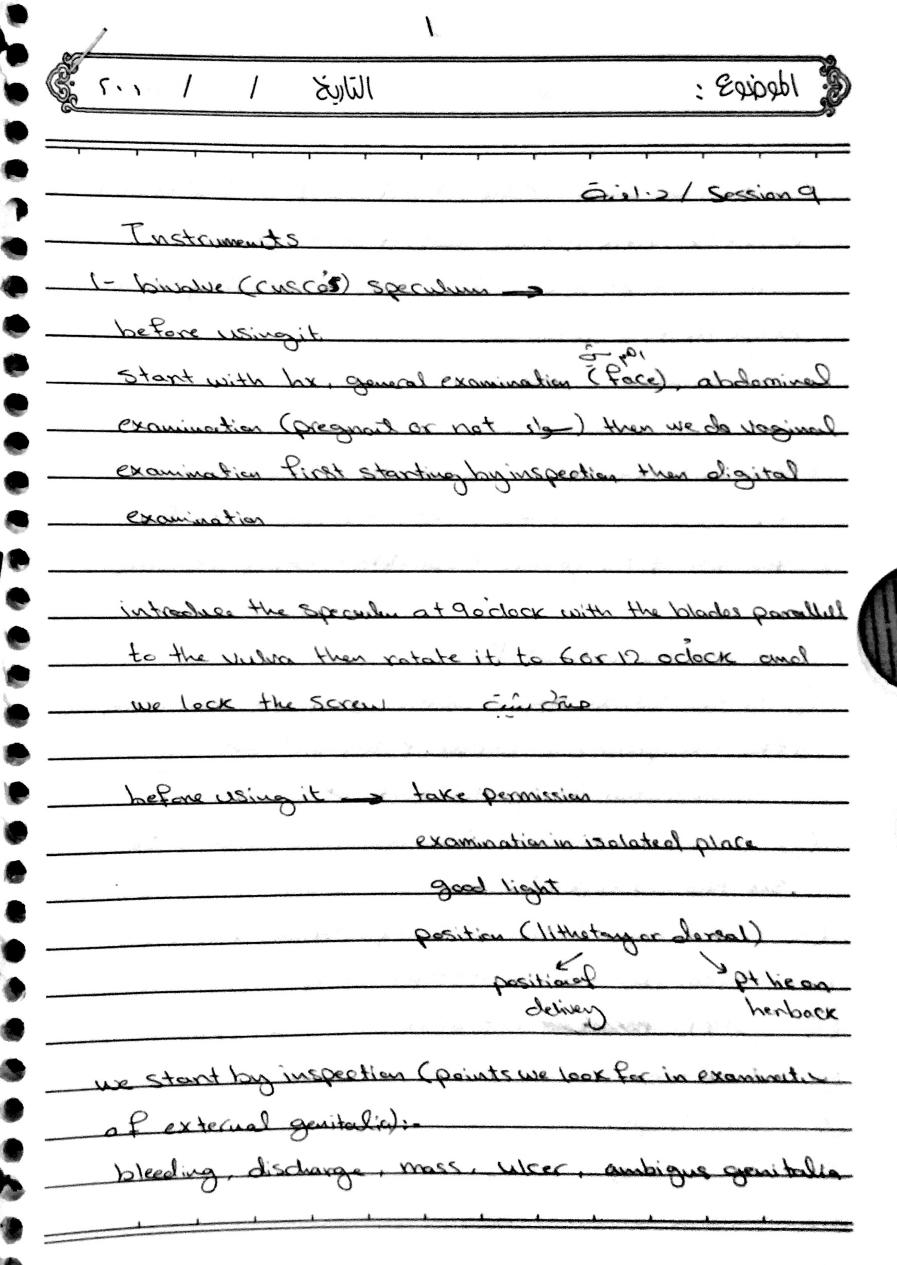 ١
الموضوع : التاريخ / / ٢٠٠١
/ Session 9
Instruments
1- bivalve (cusco's) speculum →
before using it
start with hx, general examination (face), abdominal
examination (pregnant or not سواء) then we do vaginal
examination first starting by inspection then digital
examination
introduce the speculu at 9 o'clock with the blades parallell
to the vulva then rotate it to 6 or 12 o'clock and
we lock the screw
before using it → take permission
examination in isolated place
good light
position (lithotomy or dorsal)
position of pt lie on
delivery her back
we start by inspection (points we look for in examinati
of external genitalia):-
bleeding, discharge, mass, ulcer, ambigus genitalia